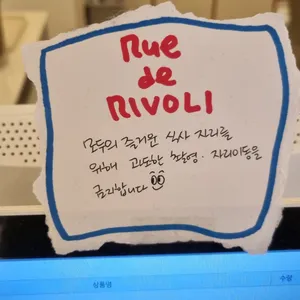 Rue
de
RIVOLI
모두의 즐거운 식사 자리를
위해 과도한 촬영·자리이동을
금지합니다
상품명
수량